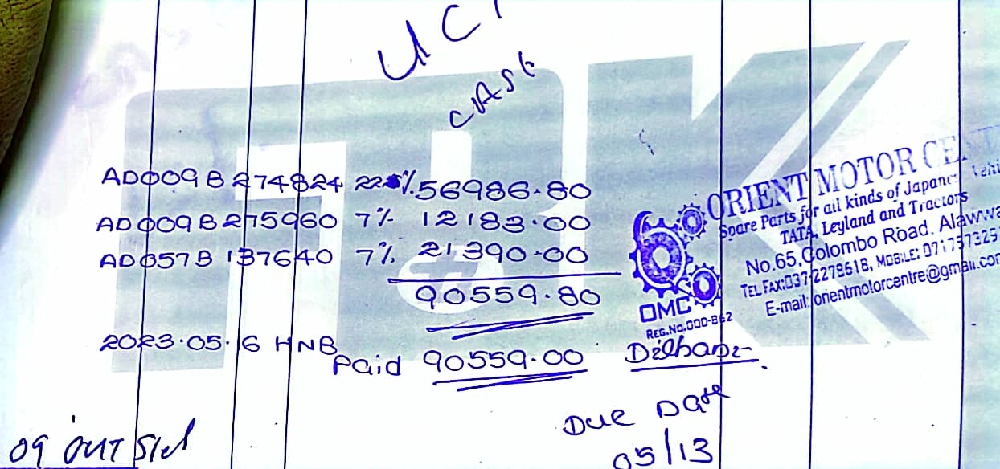 UCI
CASH
AD009B274824 22% 56986.80
AD009B275960 7% 12183.00
AD057B137640 7% 21390.00
90559.80
2023.05.16 HNB
Paid 90559.00
ORIENT MOTOR CE
Spare Parts for all kinds of Japan
TATA, Leyland and Tractors
No.65, Colombo Road, Alawwa
TEL FAX:037-2278618, MOBILE: 071757325
E-mail: orientmotorcentre@gmail.com
OMC
Due Date
05/13
09